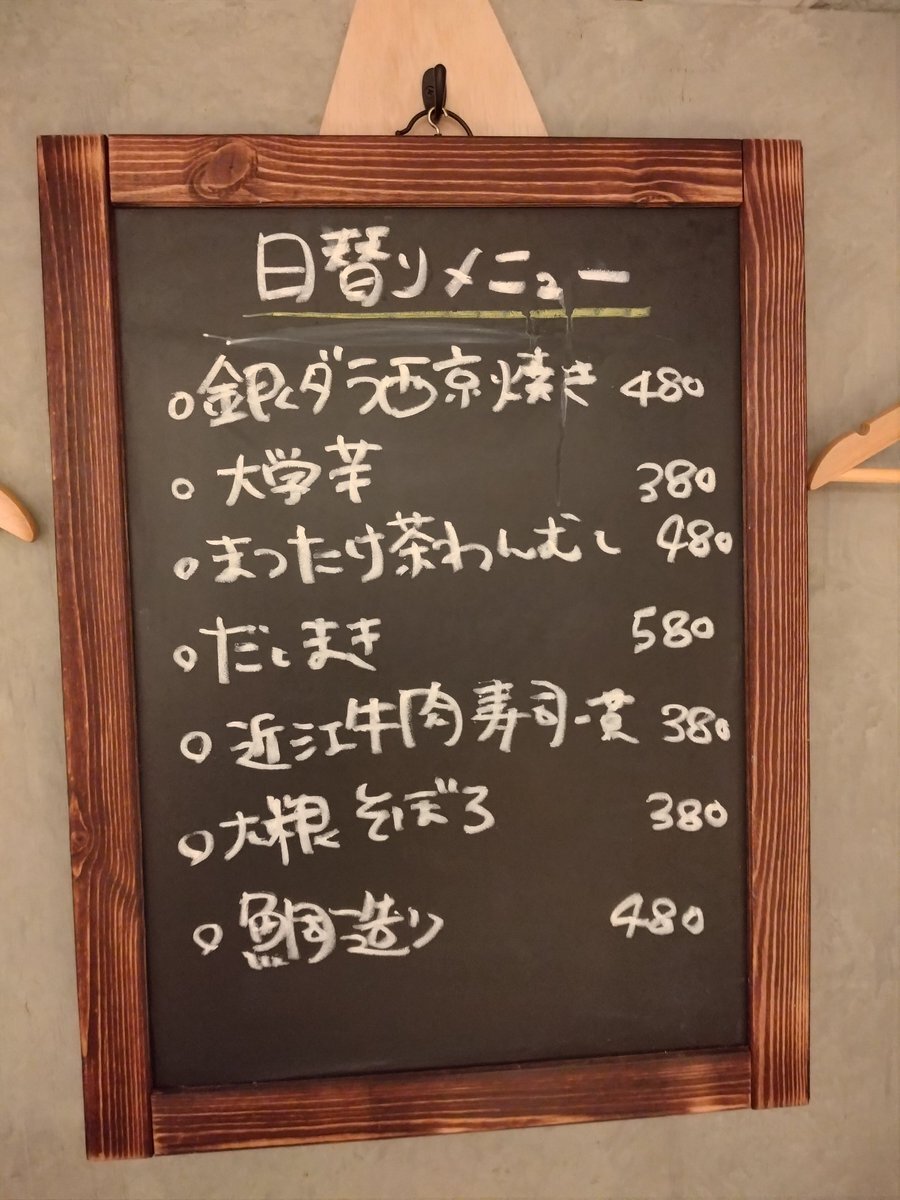 日替りメニュー
○銀ダラ西京焼き 480
○大学芋 380
○まつたけ茶わんむし 480
○だしまき 580
○近江牛肉寿司一貫 380
○大根そぼろ 380
○鯛造り 480